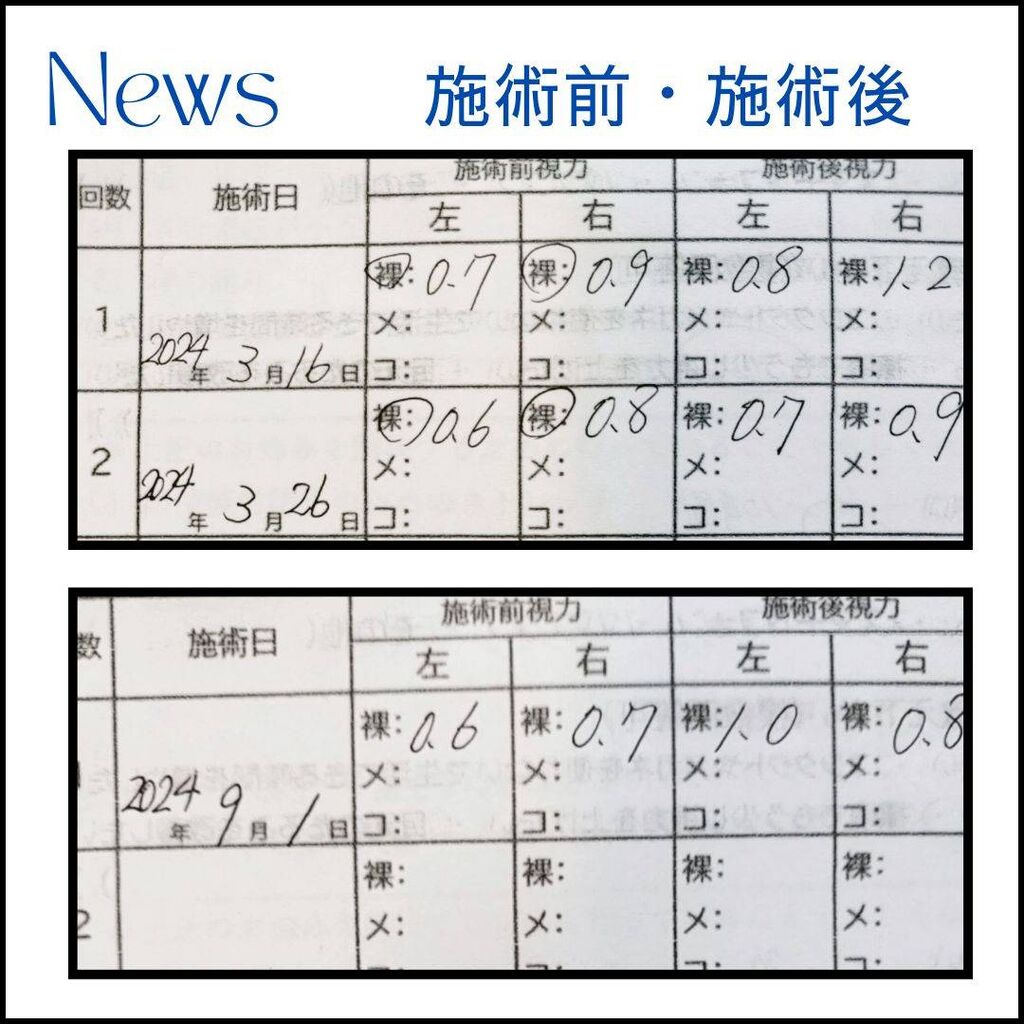 News 施術前・施術後
施術前視力 施術後視力
回数 施術日 左 右 左 右
裸: 0.7 裸: 0.9 裸: 0.8 裸: 1.2
1 メ: メ: メ: メ:
2024年 3月16日 コ: コ: コ: コ:
裸: 0.6 裸: 0.8 裸: 0.7 裸: 0.9
2 メ: メ: メ: メ:
2024年 3月26日 コ: コ: コ: コ:
施術前視力 施術後視力
数 施術日 左 右 左 右
裸: 0.6 裸: 0.7 裸: 1.0 裸: 0.8
メ: メ: メ: メ:
2024年 9月1日 コ: コ: コ: コ:
裸: 裸: 裸: 裸:
2 メ: メ: メ: メ: